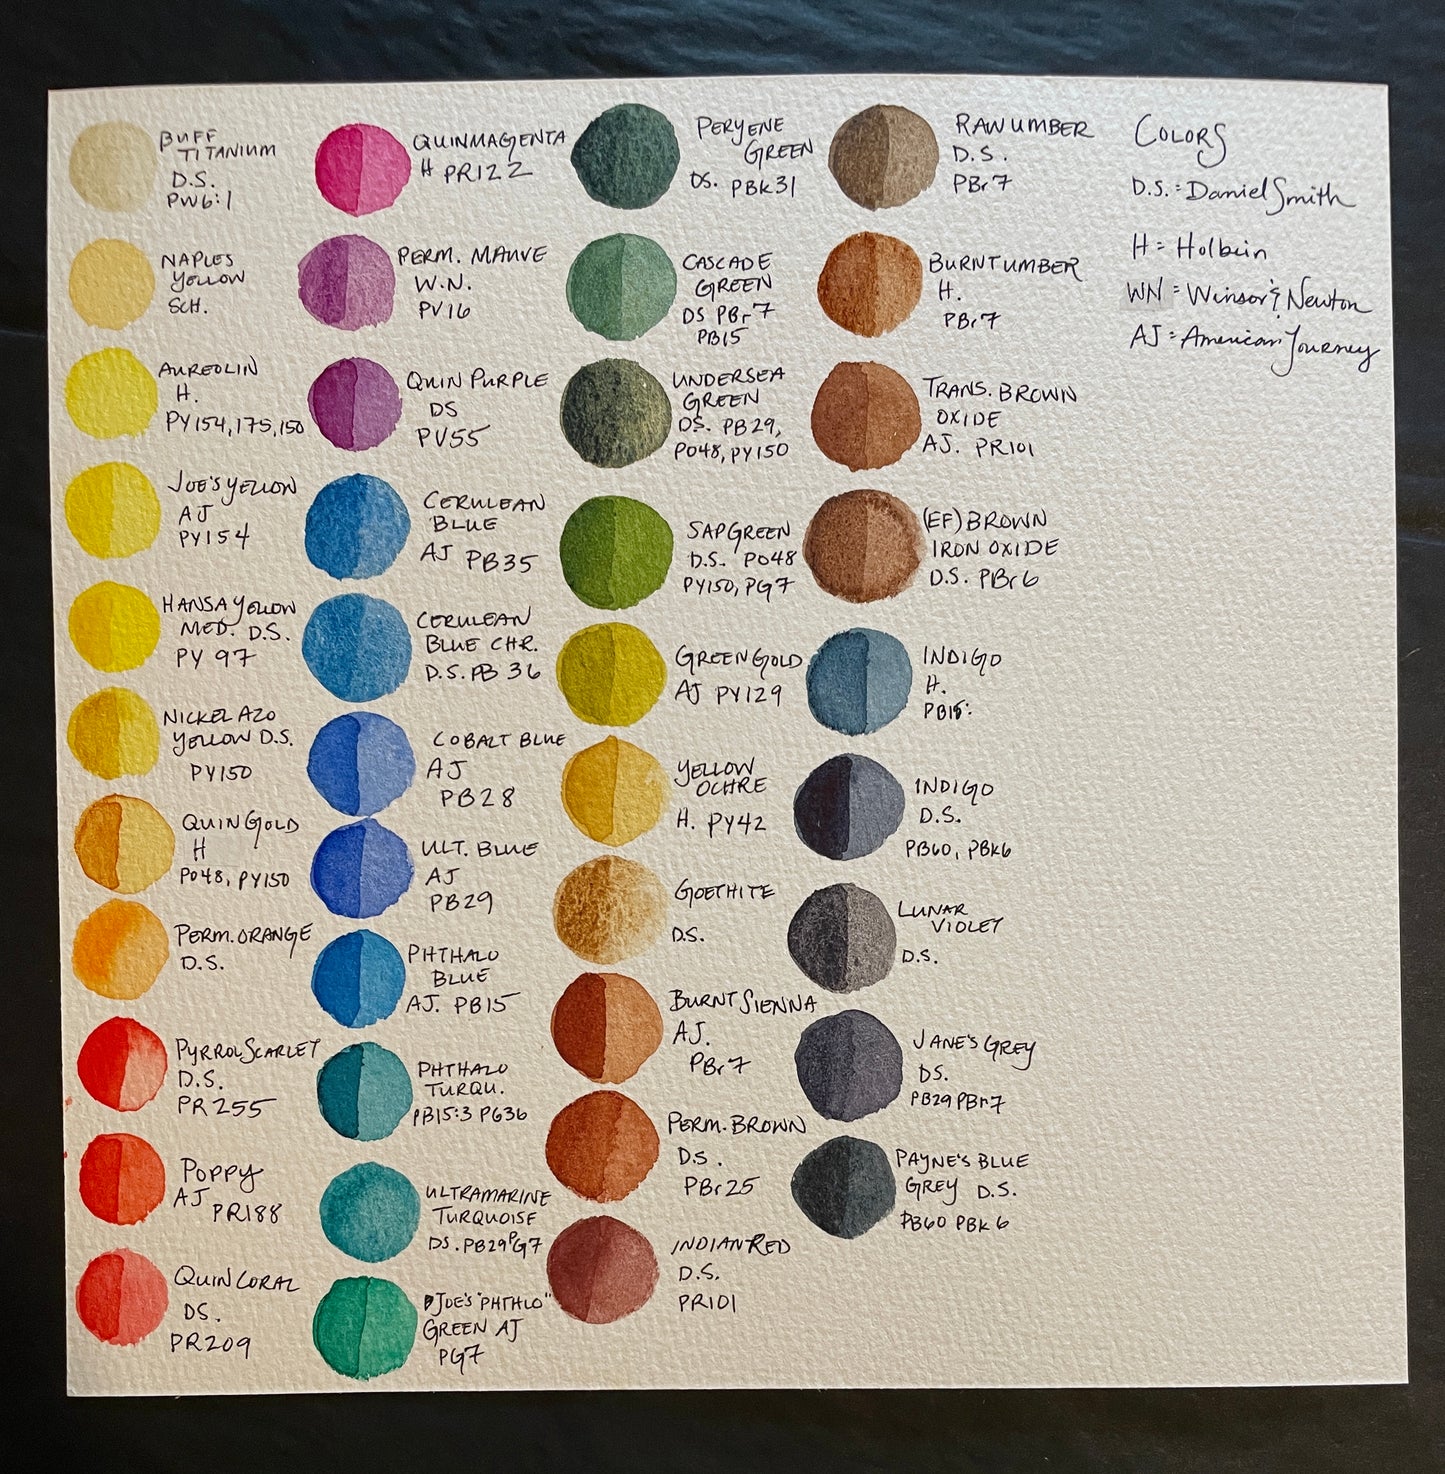 BUFF
TITANIUM
D.S.
PW6:1
NAPLES
YELLOW
SCH.
AUREOLIN
H.
PY154,175,150
JOE'S YELLOW
AJ
PY154
HANSA YELLOW
MED. D.S.
PY 97
NICKEL AZO
YELLOW D.S.
PY150
QUIN GOLD
H
PO48, PY150
PERM. ORANGE
D.S.
PYRROL SCARLET
D.S.
PR255
POPPY
AJ
PR188
QUIN CORAL
DS.
PR209
QUIN MAGENTA
H PR122
PERM. MAUVE
W.N.
PV16
QUIN PURPLE
DS
PV55
CERULEAN
BLUE
AJ PB35
CERULEAN
BLUE CHR.
D.S. PB 36
COBALT BLUE
AJ
PB28
ULT. BLUE
AJ
PB29
PHTHALO
BLUE
AJ. PB15
PHTHALO
TURQU.
PB15:3 PG36
ULTRAMARINE
TURQUOISE
DS. PB29 PG7
JOE'S "PHTHLO"
GREEN AJ
PG7
PERYENE
GREEN
DS. PBK31
CASCADE
GREEN
DS PBr7
PB15
UNDERSEA
GREEN
D.S. PB29,
PO48, PY150
SAP GREEN
D.S. PO48
PY150, PG7
GREEN GOLD
AJ PY129
YELLOW
OCHRE
H. PY42
GOETHITE
D.S.
BURNT SIENNA
AJ.
PBr7
PERM. BROWN
D.S.
PBr25
INDIAN RED
D.S.
PR101
RAW UMBER
D.S.
PBr7
BURNT UMBER
H.
PBr7
TRANS. BROWN
OXIDE
AJ. PR101
(EF) BROWN
IRON OXIDE
D.S. PBr6
INDIGO
H.
PB15:
INDIGO
D.S.
PB60, PBK6
LUNAR
VIOLET
D.S.
JANE'S GREY
DS.
PB29 PBr7
PAYNE'S BLUE
GREY D.S.
PB60 PBK6
COLORS
D.S. = Daniel Smith
H = Holbein
WN = Winsor & Newton
AJ = American Journey